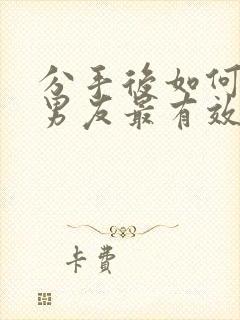 分手後如何
男友最有效
卡費